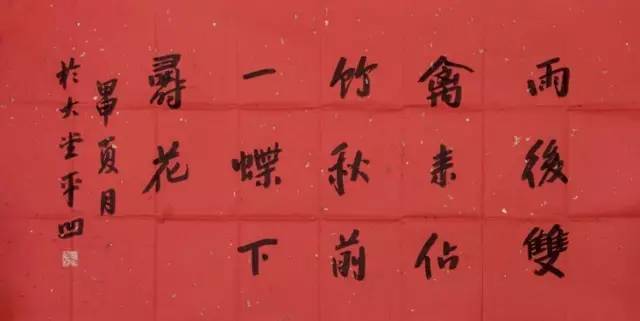 雨後雙
禽来佔
竹秋前
一蝶下
尋花
夏月
於大堂平凹